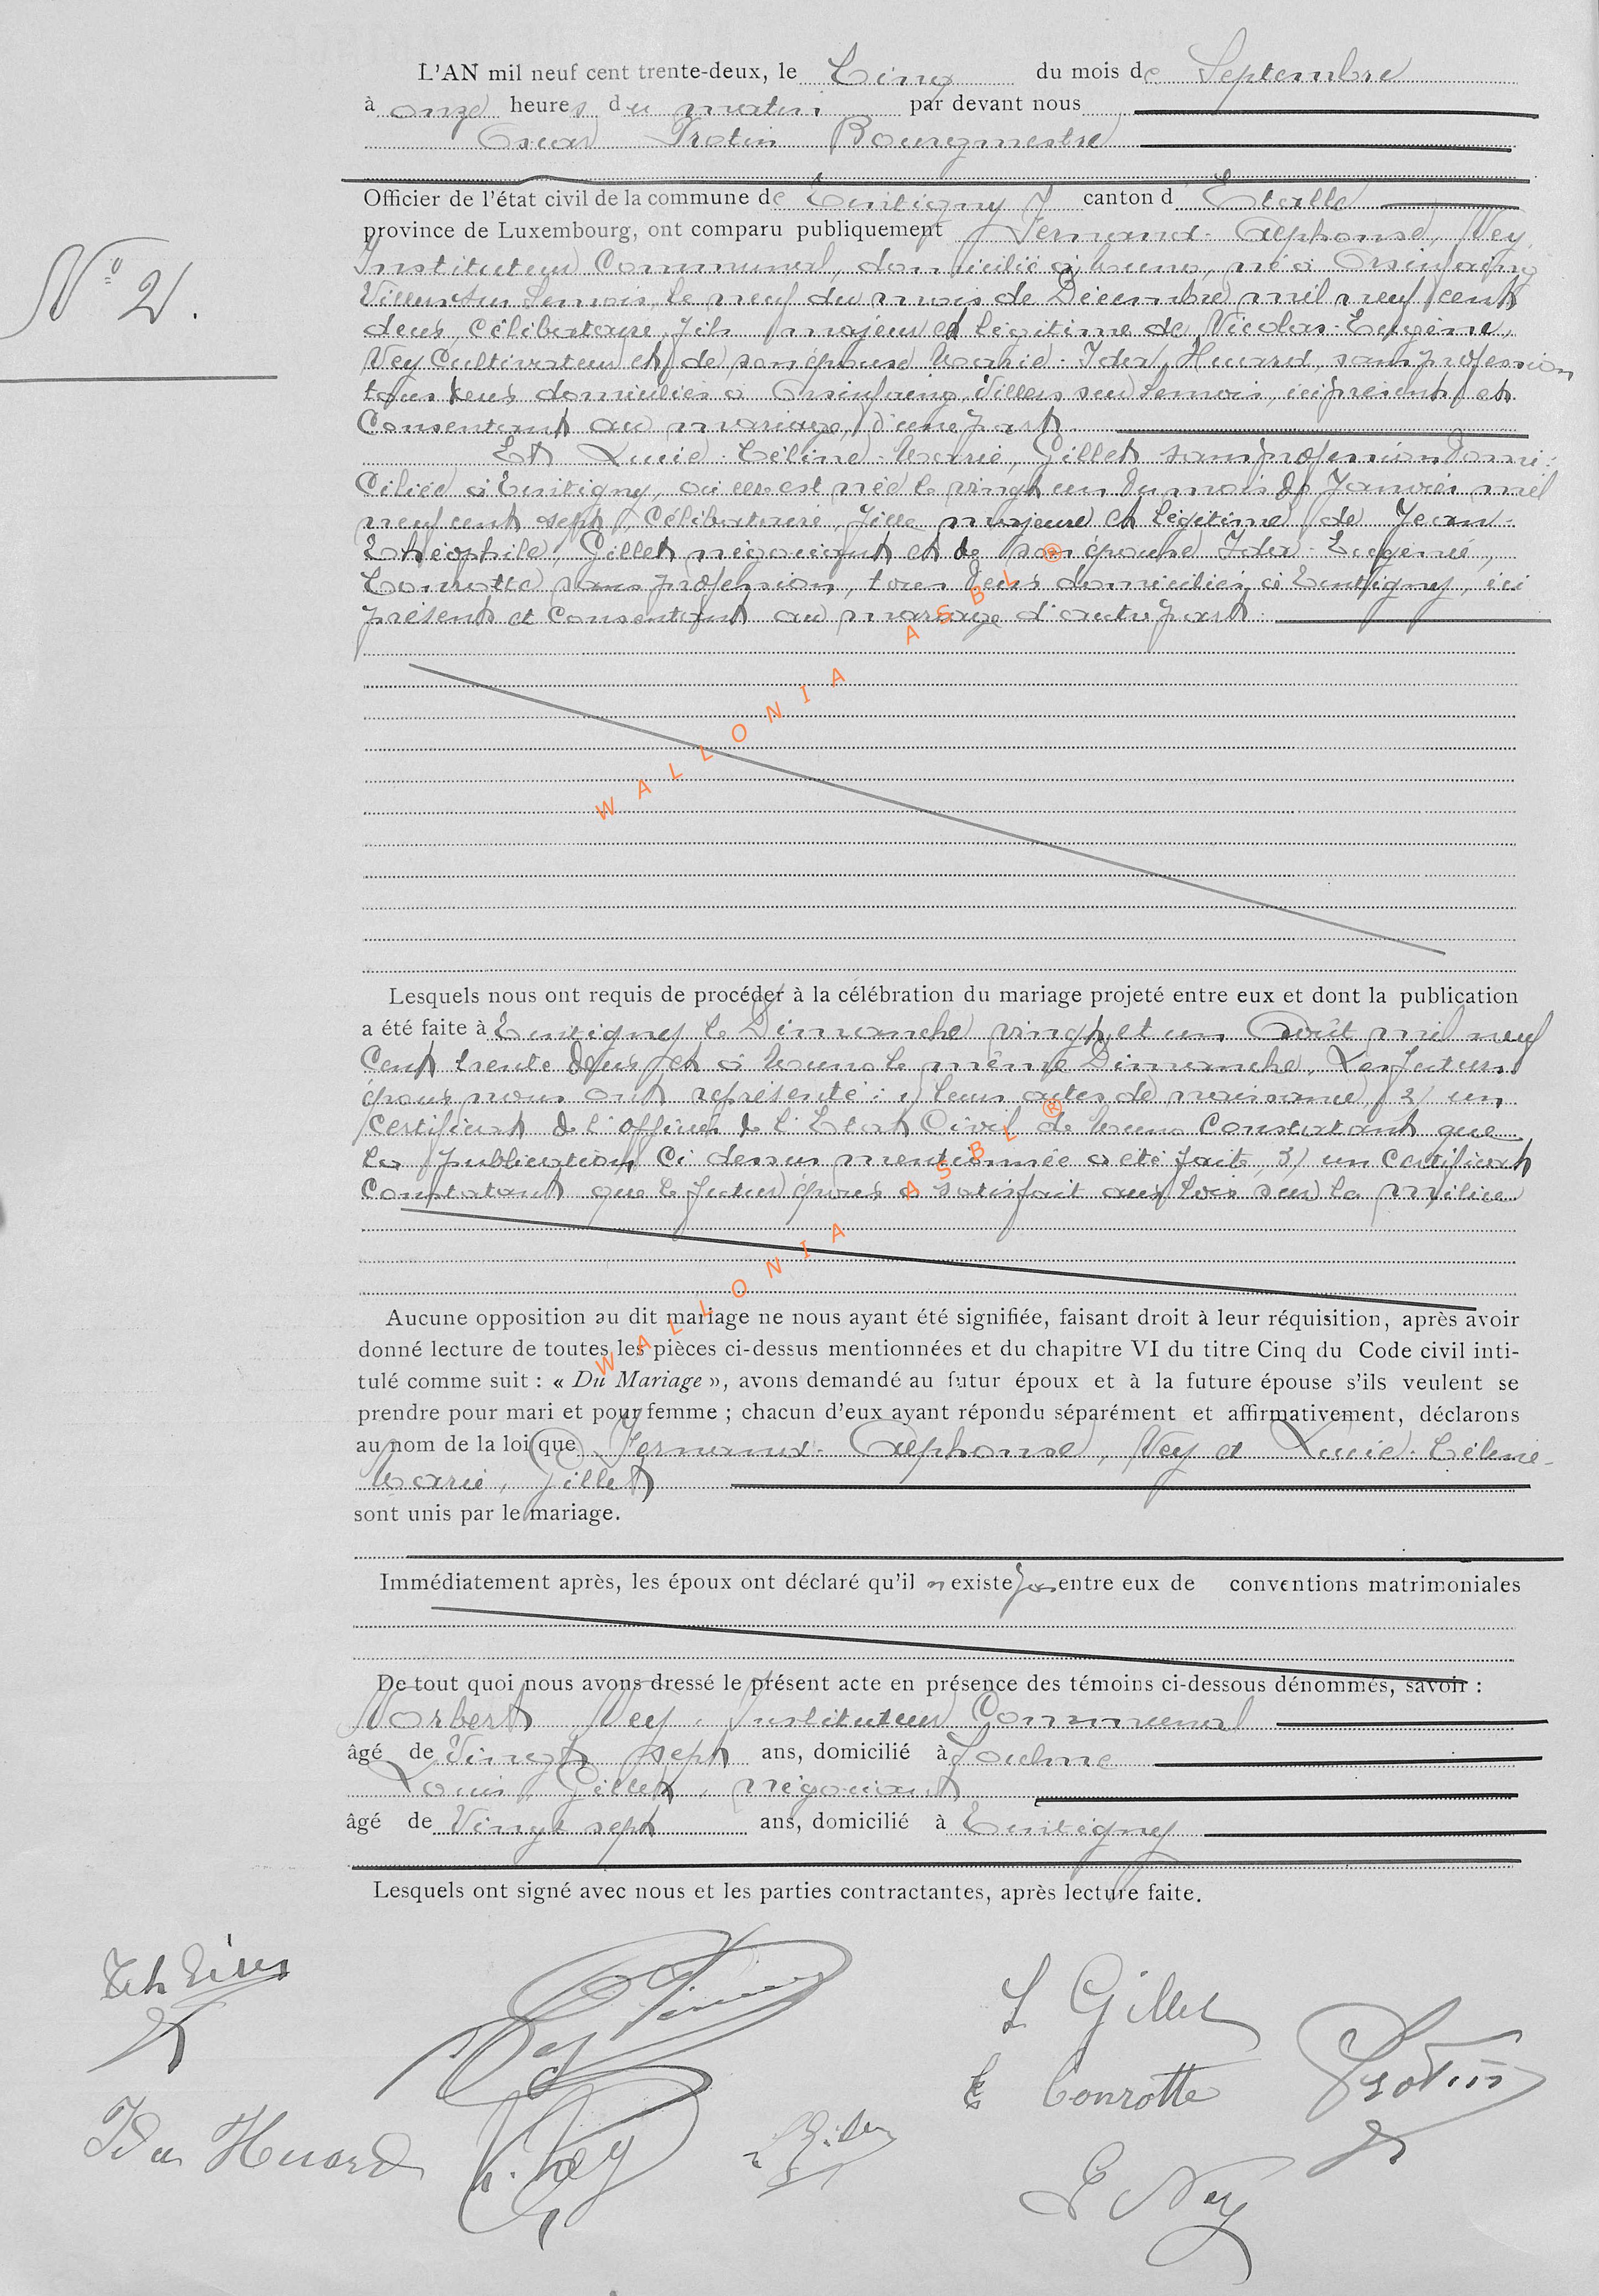 L'AN mil neuf cent trente-deux, le Cinq du mois de Septembre
à onze heures du matin par devant nous
Oscar Protin Bourgmestre
Officier de l'état civil de la commune de Tintigny canton d Etalle
province de Luxembourg, ont comparu publiquement Fernand-Alphonse, Ney,
N° 2.
Instituteur Communal, domicilié à né à Orsinfaing
Villers sur Semois, le neuf du mois de Décembre mil neuf cent
deux, Célibataire, fils majeur et légitime de Nicolas-Eugène,
Ney Cultivateur et de son épouse Marie-Ida, Huard, sans profession
tous deux domiciliés à Orsinfaing, Villers sur Semois, ici présents et
Consentant au mariage, d'une part.
Et Lucie-Céline-Marie, Gillet sans profession domi-
Ciliée à Tintigny, où elle est née le vingt un du mois de Janvier mil
neuf cent sept, Célibataire, fille majeure et légitime de Jean-
Théophile, Gillet négociant et de son épouse Ida-Eugénie,
Conrotte sans profession, tous deux domiciliés à Tintigny, ici
présents et Consentant au mariage d'autre part.
WALLONIA ASBL ®
Lesquels nous ont requis de procéder à la célébration du mariage projeté entre eux et dont la publication
a été faite à Tintigny le Dimanche vingt et un Août mil neuf
Cent trente deux et à le même Dimanche, Les futurs
époux nous ont représenté : 1) leurs actes de naissance, 2) un
certificat de l'officier de l'Etat Civil de Constatant que
la publication Ci dessus mentionnée a été faite, 3) un Certificat
Constatant que le futur époux a satisfait aux lois sur la milice
WALLONIA ASBL ®
Aucune opposition au dit mariage ne nous ayant été signifiée, faisant droit à leur réquisition, après avoir
donné lecture de toutes les pièces ci-dessus mentionnées et du chapitre VI du titre Cinq du Code civil inti-
tulé comme suit : « Du Mariage », avons demandé au futur époux et à la future épouse s'ils veulent se
prendre pour mari et pour femme ; chacun d'eux ayant répondu séparément et affirmativement, déclarons
au nom de la loi que Fernand-Alphonse, Ney et Lucie-Céline-
Marie, Gillet
sont unis par le mariage.
Immédiatement après, les époux ont déclaré qu'il n'existe pas entre eux de conventions matrimoniales
De tout quoi nous avons dressé le présent acte en présence des témoins ci-dessous dénommés, savoir :
Norbert Ney, Instituteur Communal
âgé de Vingt sept ans, domicilié à
Louis Gillet, négociant
âgé de Vingt sept ans, domicilié à Tintigny
Lesquels ont signé avec nous et les parties contractantes, après lecture faite.
L Gillet
E Conrotte Protin
Ida Huard N. Ney
E Ney